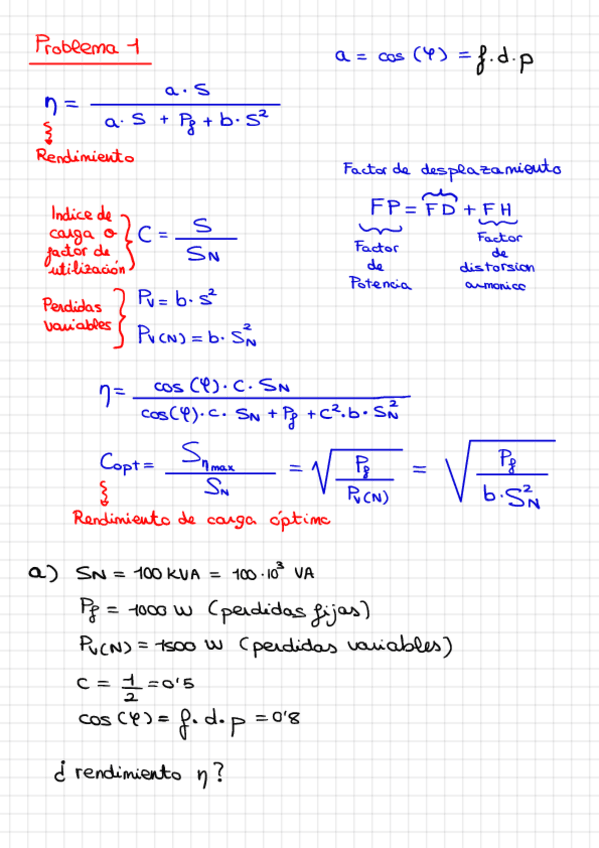 Problema 1
a = cos (φ) = f.d.p
η = a · S / a · S + Pf + b · S²
Rendimiento
Factor de desplazamiento
FP = FD + FH
Factor de Potencia
Factor de distorsion armonico
Indice de carga o factor de utilización
C = S / SN
Perdidas variables
Pv = b · s²
Pv(N) = b · SN²
η = cos (φ) · C · SN / cos(φ) · C · SN + Pf + C² · b · SN²
Copt = Sηmax / SN = √(Pf / Pv(N)) = √(Pf / b · SN²)
Rendimiento de carga óptimo
a) SN = 100 KVA = 100 · 10³ VA
Pf = 1000 W (perdidas fijas)
Pv(N) = 1500 W (perdidas variables)
C = 1/2 = 0'5
cos (φ) = f.d.p = 0'8
¿ rendimiento η?